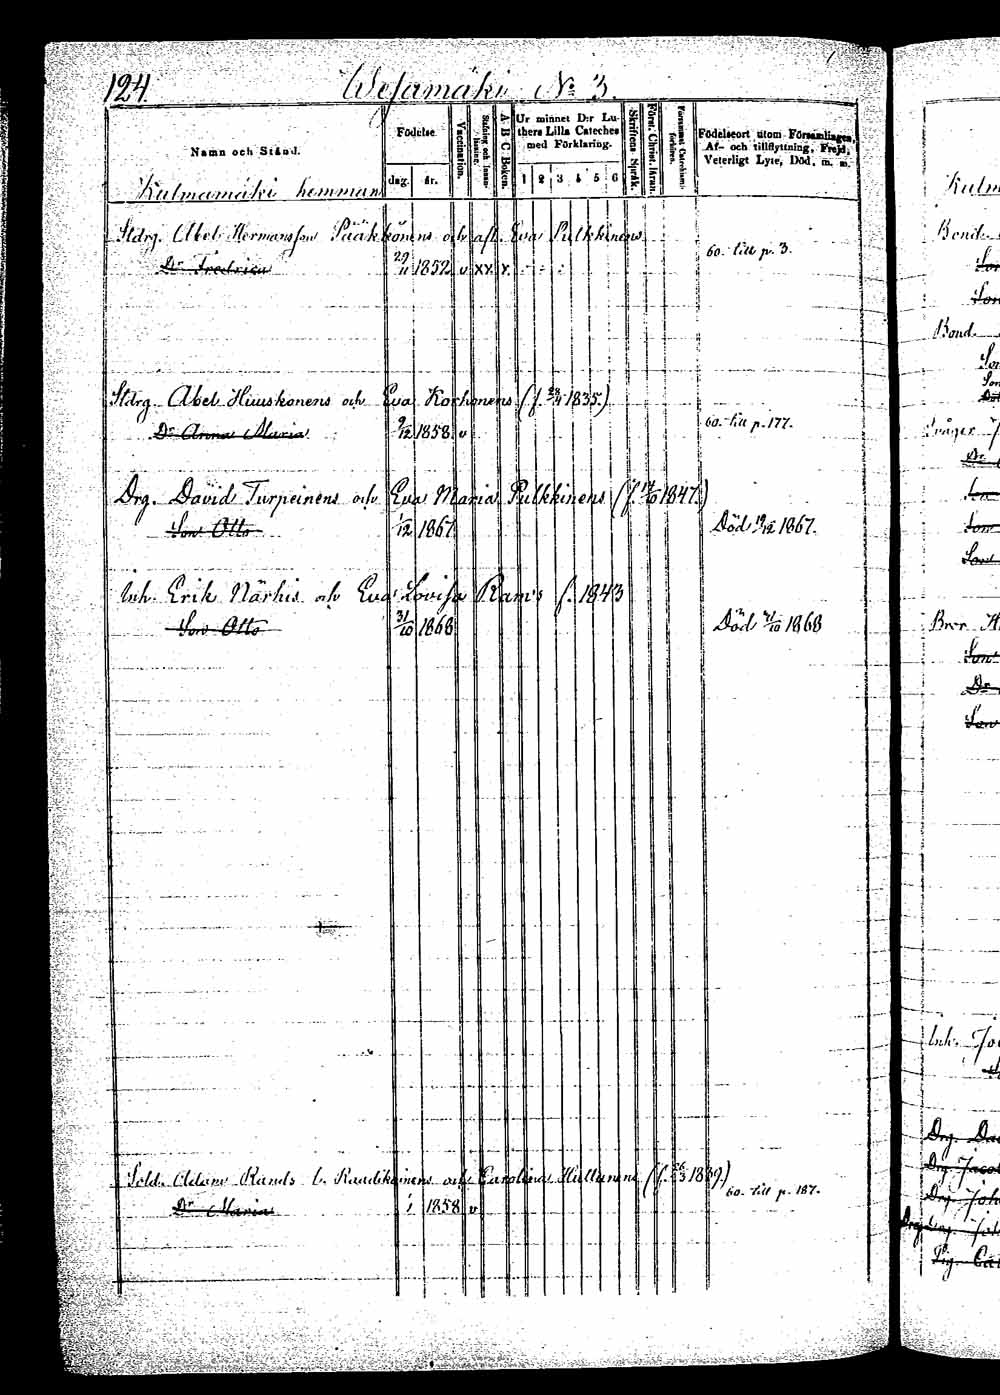 124.
Wesamäki № 3.
Namn och Stånd.
Födelse.
dag. år.
Vaccination.
A B C Boken.
Ur minnet D:r Lu-
thers Lilla Cateches
med Förklaring.
1 2 3 4 5 6
Skriftens Språk.
Födelseort utom Församlingen,
Af- och tillflyttning, Frejd,
Veterligt Lyte, Död, m. m.
Kulmamäki hemman
Stdrg. Abel Hermansson Pääkkönens och afl. Eva Pulkkinens
Dr Fredrica 29/11 1852 v xx x 60. till p. 3.
Stdrg. Abel Huuskonens och Eva Korhonens (f. 1835.)
Dr Anna Maria 9/12 1858 v 60. till p. 177.
Drg. David Turpeinens och Eva Maria Pulkkinens (f. 14/10 1847.)
Son Otto 1/12 1867 Död 19/12 1867.
Inh. Erik Närhis och Eva Lovisa Ram's f. 1843
Son Otto 31/10 1868 Död 31/10 1868
Sold. Adam Rands l. Raudikainens och Carolina Hultunens (f. 26/3 1839.)
Dr Maria 1858 v 60. till p. 187.
Bond.
Son
Son
Bond.
Son
Son
Dr
Son
Son
Son
Bror H
Son
Dr
Son
Inh. Jo
Drg. Da
Drg. Jacob
Drg. Joh
Drg. Joh
Pig. Ca